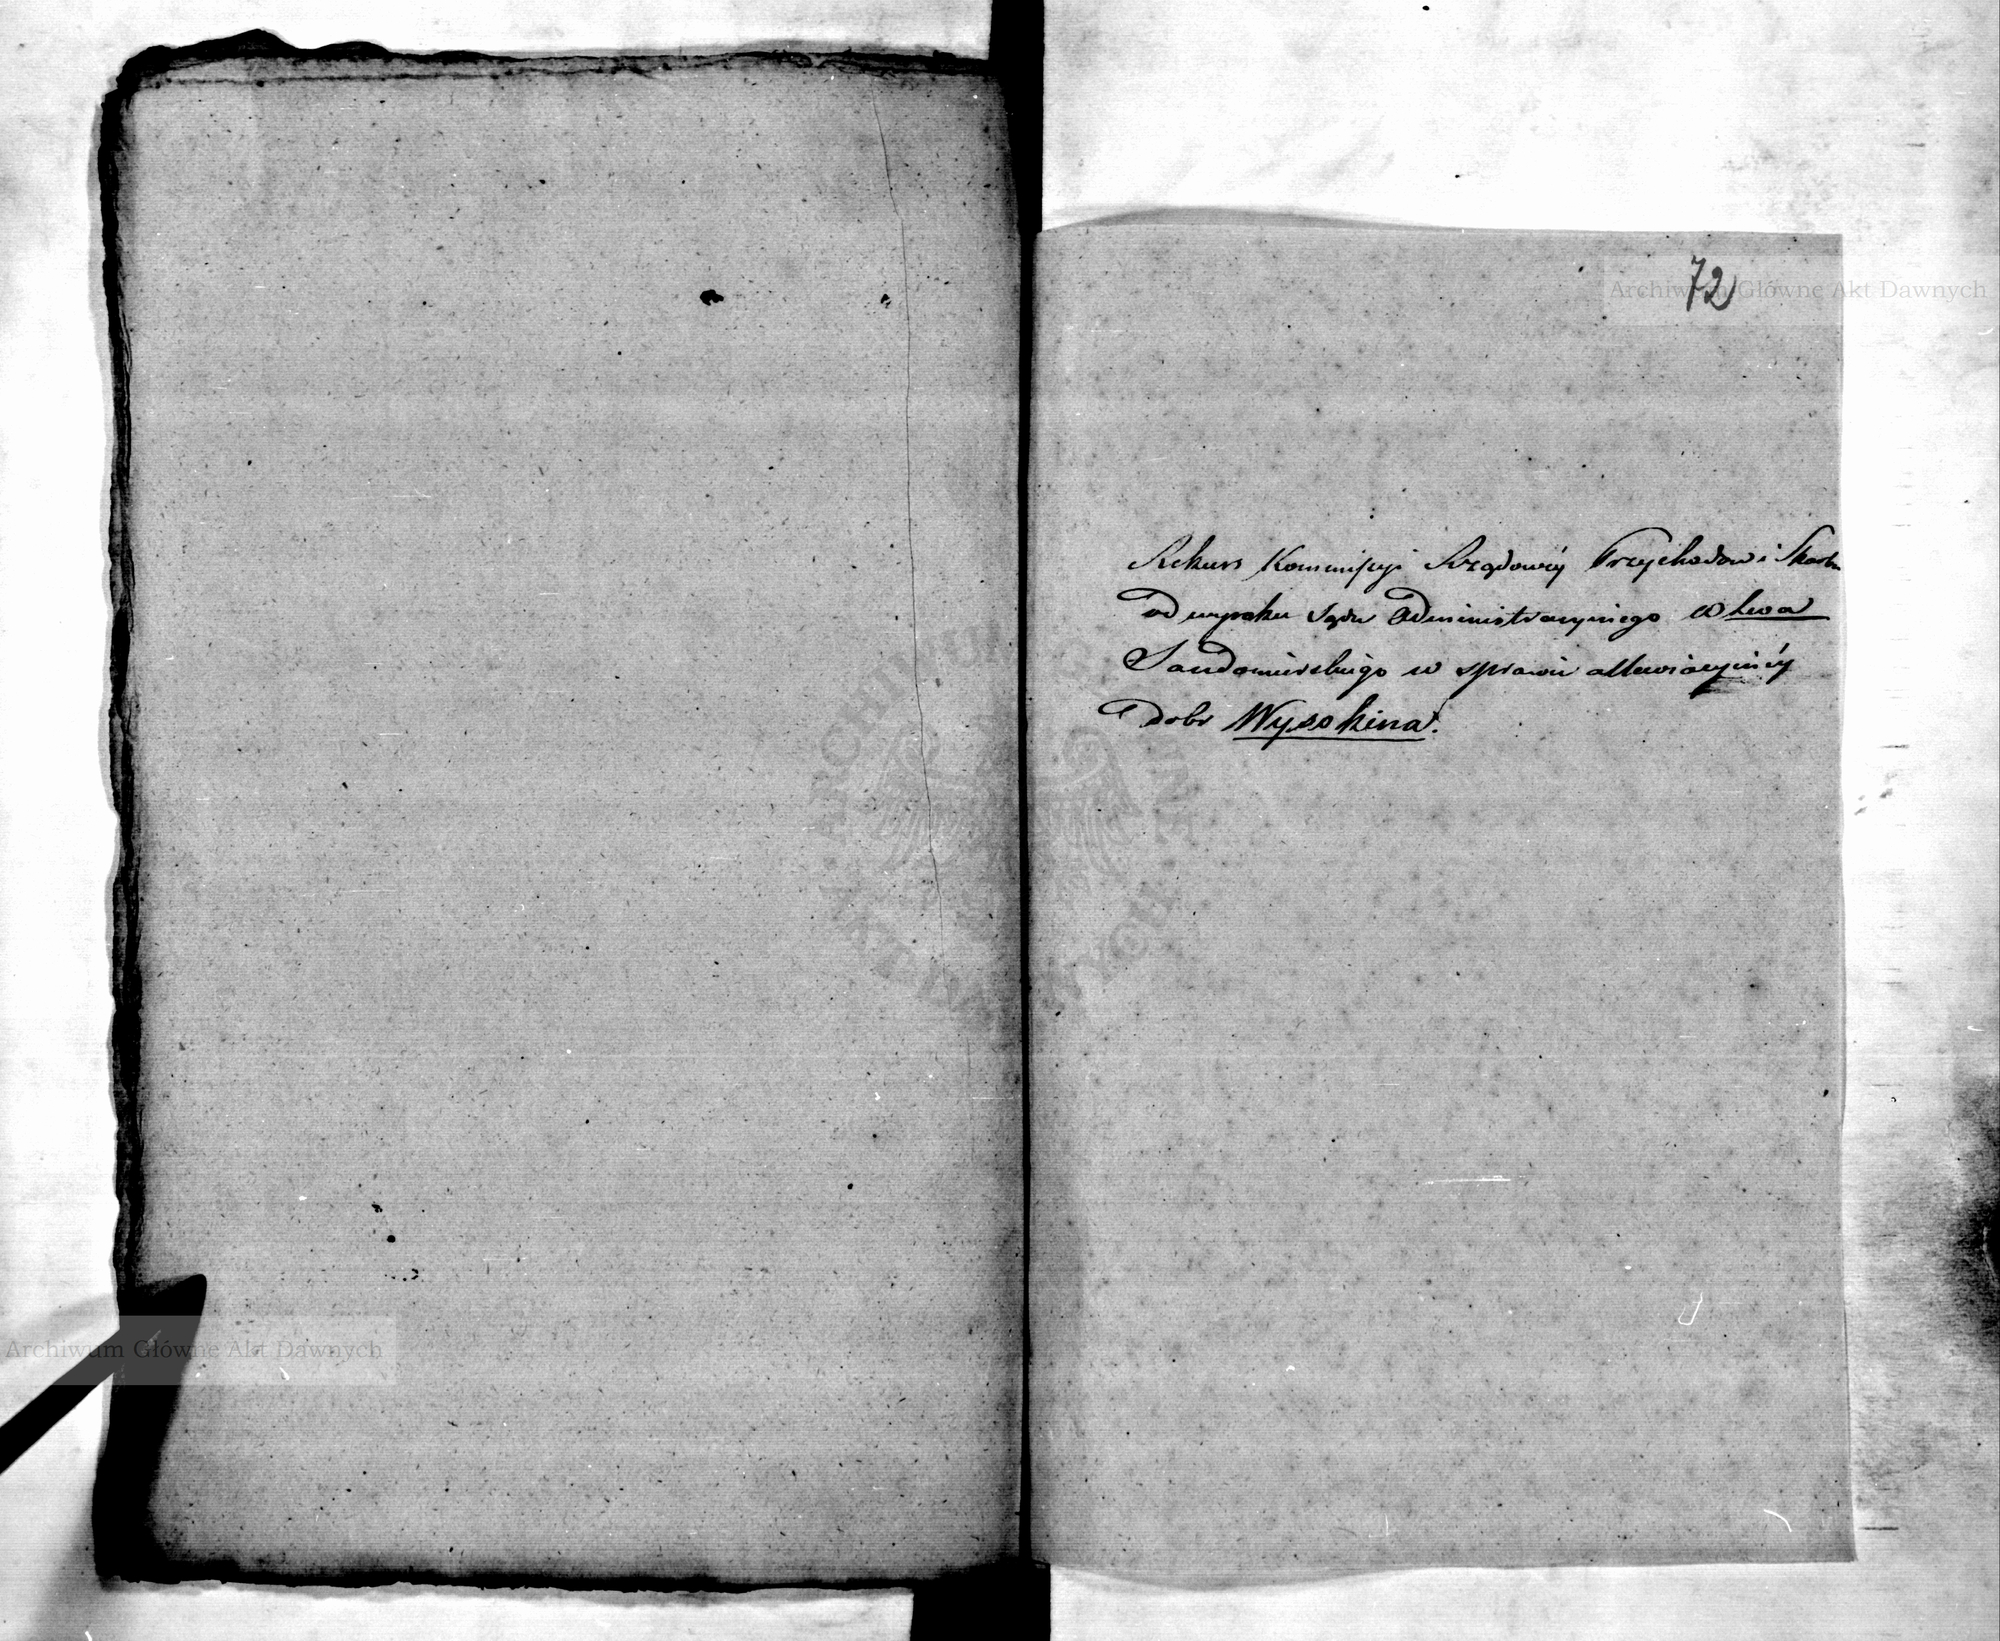 72
Rekurs Kommissyi Rządowéy Przychodow i Skarbu
od wyroku Sądu Administracyinego Wdztwa
Sandomierskiego w sprawie allewiacyinéy
Dobr Wysokina.
Archiwum Główne Akt Dawnych
Archiwum Główne Akt Dawnych